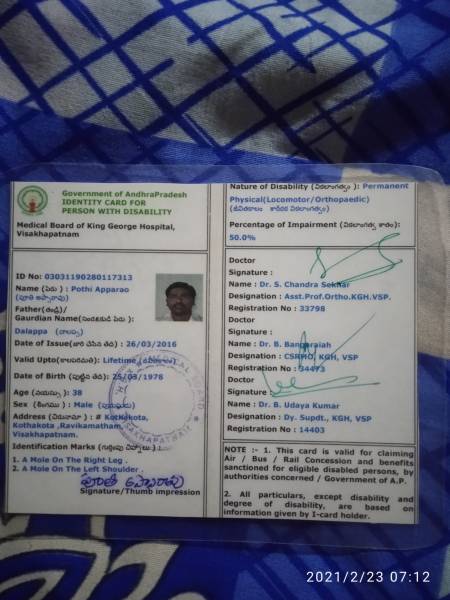 Government of AndhraPradesh
IDENTITY CARD FOR
PERSON WITH DISABILITY
Medical Board of King George Hospital,
Visakhapatnam
ID No: 03031190280117313
Name (పేరు) : Pothi Apparao
(పూతి అప్పారావు)
Father(తండ్రి)/
Gaurdian Name(సంరక్షకుడి పేరు) :
Dalappa (దాలప్ప)
Date of Issue(జారి చేసిన తేది) : 26/03/2016
Valid Upto(కాలపరిమితి): Lifetime
Date of Birth (పుట్టిన తేది): 25/03/1978
Age (వయస్సు) : 38
Sex (లింగము) : Male (పురుషుడు)
Address (చిరునామా) : # Kothakota,
Kothakota ,Ravikamatham,
Visakhapatnam.
Identification Marks (గుర్తింపు చిహ్నాలు) :
1. A Mole On The Right Leg .
2. A Mole On The Left Shoulder .
పూతి అప్పారావు
Signature/Thumb impression
Nature of Disability (వికలాంగత్వం) : Permanent
Physical(Locomotor/Orthopaedic)
Percentage of Impairment (వికలాంగత్వ శాతం):
50.0%
Doctor
Signature :
Name : Dr. S. Chandra Sekhar
Designation : Asst.Prof.Ortho.KGH.VSP.
Registration No : 33798
Doctor
Signature :
Name : Dr. B. Bangaraiah
Designation : CSRMO, KGH, VSP
Registration No : 34473
Doctor
Signature :
Name : Dr. B. Udaya Kumar
Designation : Dy. Supdt., KGH, VSP
Registration No : 14403
NOTE :- 1. This card is valid for claiming
Air / Bus / Rail Concession and benefits
sanctioned for eligible disabled persons, by
authorities concerned / Government of A.P.
2. All particulars, except disability and
degree of disability, are based on
information given by I-card holder.
2021/2/23 07:12